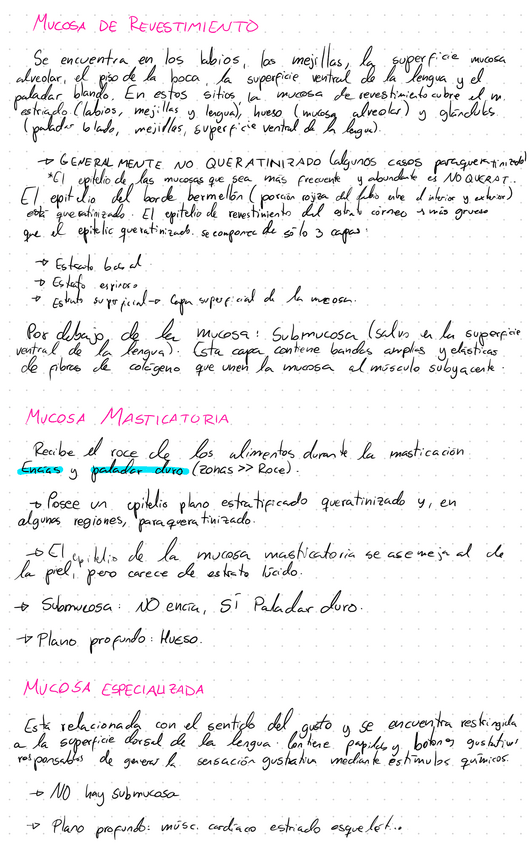 MUCOSA DE REVESTIMIENTO
Se encuentra en los labios, las mejillas, la superficie mucosa
alveolar, el piso de la boca, la superficie ventral de la lengua y el
paladar blando. En estos sitios, la mucosa de revestimiento cubre el m.
estriado (labios, mejillas y lengua), hueso (mucosa alveolar) y glándulas.
(paladar blado, mejillas, superficie ventral de la legua).
→ GENERALMENTE NO QUERATINIZADO (algunos casos paraqueratinizado)
*El epitelio de las mucosas que sea más frecuente y abundante es NO QUERAT..
El epitelio del borde bermellón (porción rojiza del labio entre el interior y exterior)
está queratinizado. El epitelio de revestimiento del estrato córneo más grueso
que el epitelio queratinizado. se compone de sólo 3 capas:
→ Estrato basal.
→ Estrato espinoso
→ Estrato superficial → Capa superficial de la mucosa.
Por debajo de la mucosa: Submucosa (salvo en la superficie
ventral de la lengua). Esta capa contiene bandas amplias y elásticas
de fibras de colágeno que unen la mucosa al músculo subyacente.
MUCOSA MASTICATORIA
Recibe el roce de los alimentos durante la masticación.
Encías y paladar duro (zonas >> Roce).
→ Posee un epitelio plano estratificado queratinizado y, en
algunas regiones, paraqueratinizado.
→ El epitelio de la mucosa masticatoria se asemeja al de
la piel, pero carece de estrato lúcido.
→ Submucosa: NO encía, SÍ Paladar duro.
→ Plano profundo: HUESO.
MUCOSA ESPECIALIZADA
Está relacionada con el sentido del gusto y se encuentra restringida
a la superficie dorsal de la lengua. Contiene papilas y botones gustativos
responsables de generar la sensación gustativa mediante estímulos químicos.
→ NO hay submucosa
→ Plano profundo: músc. cardiaco estriado esquelét...